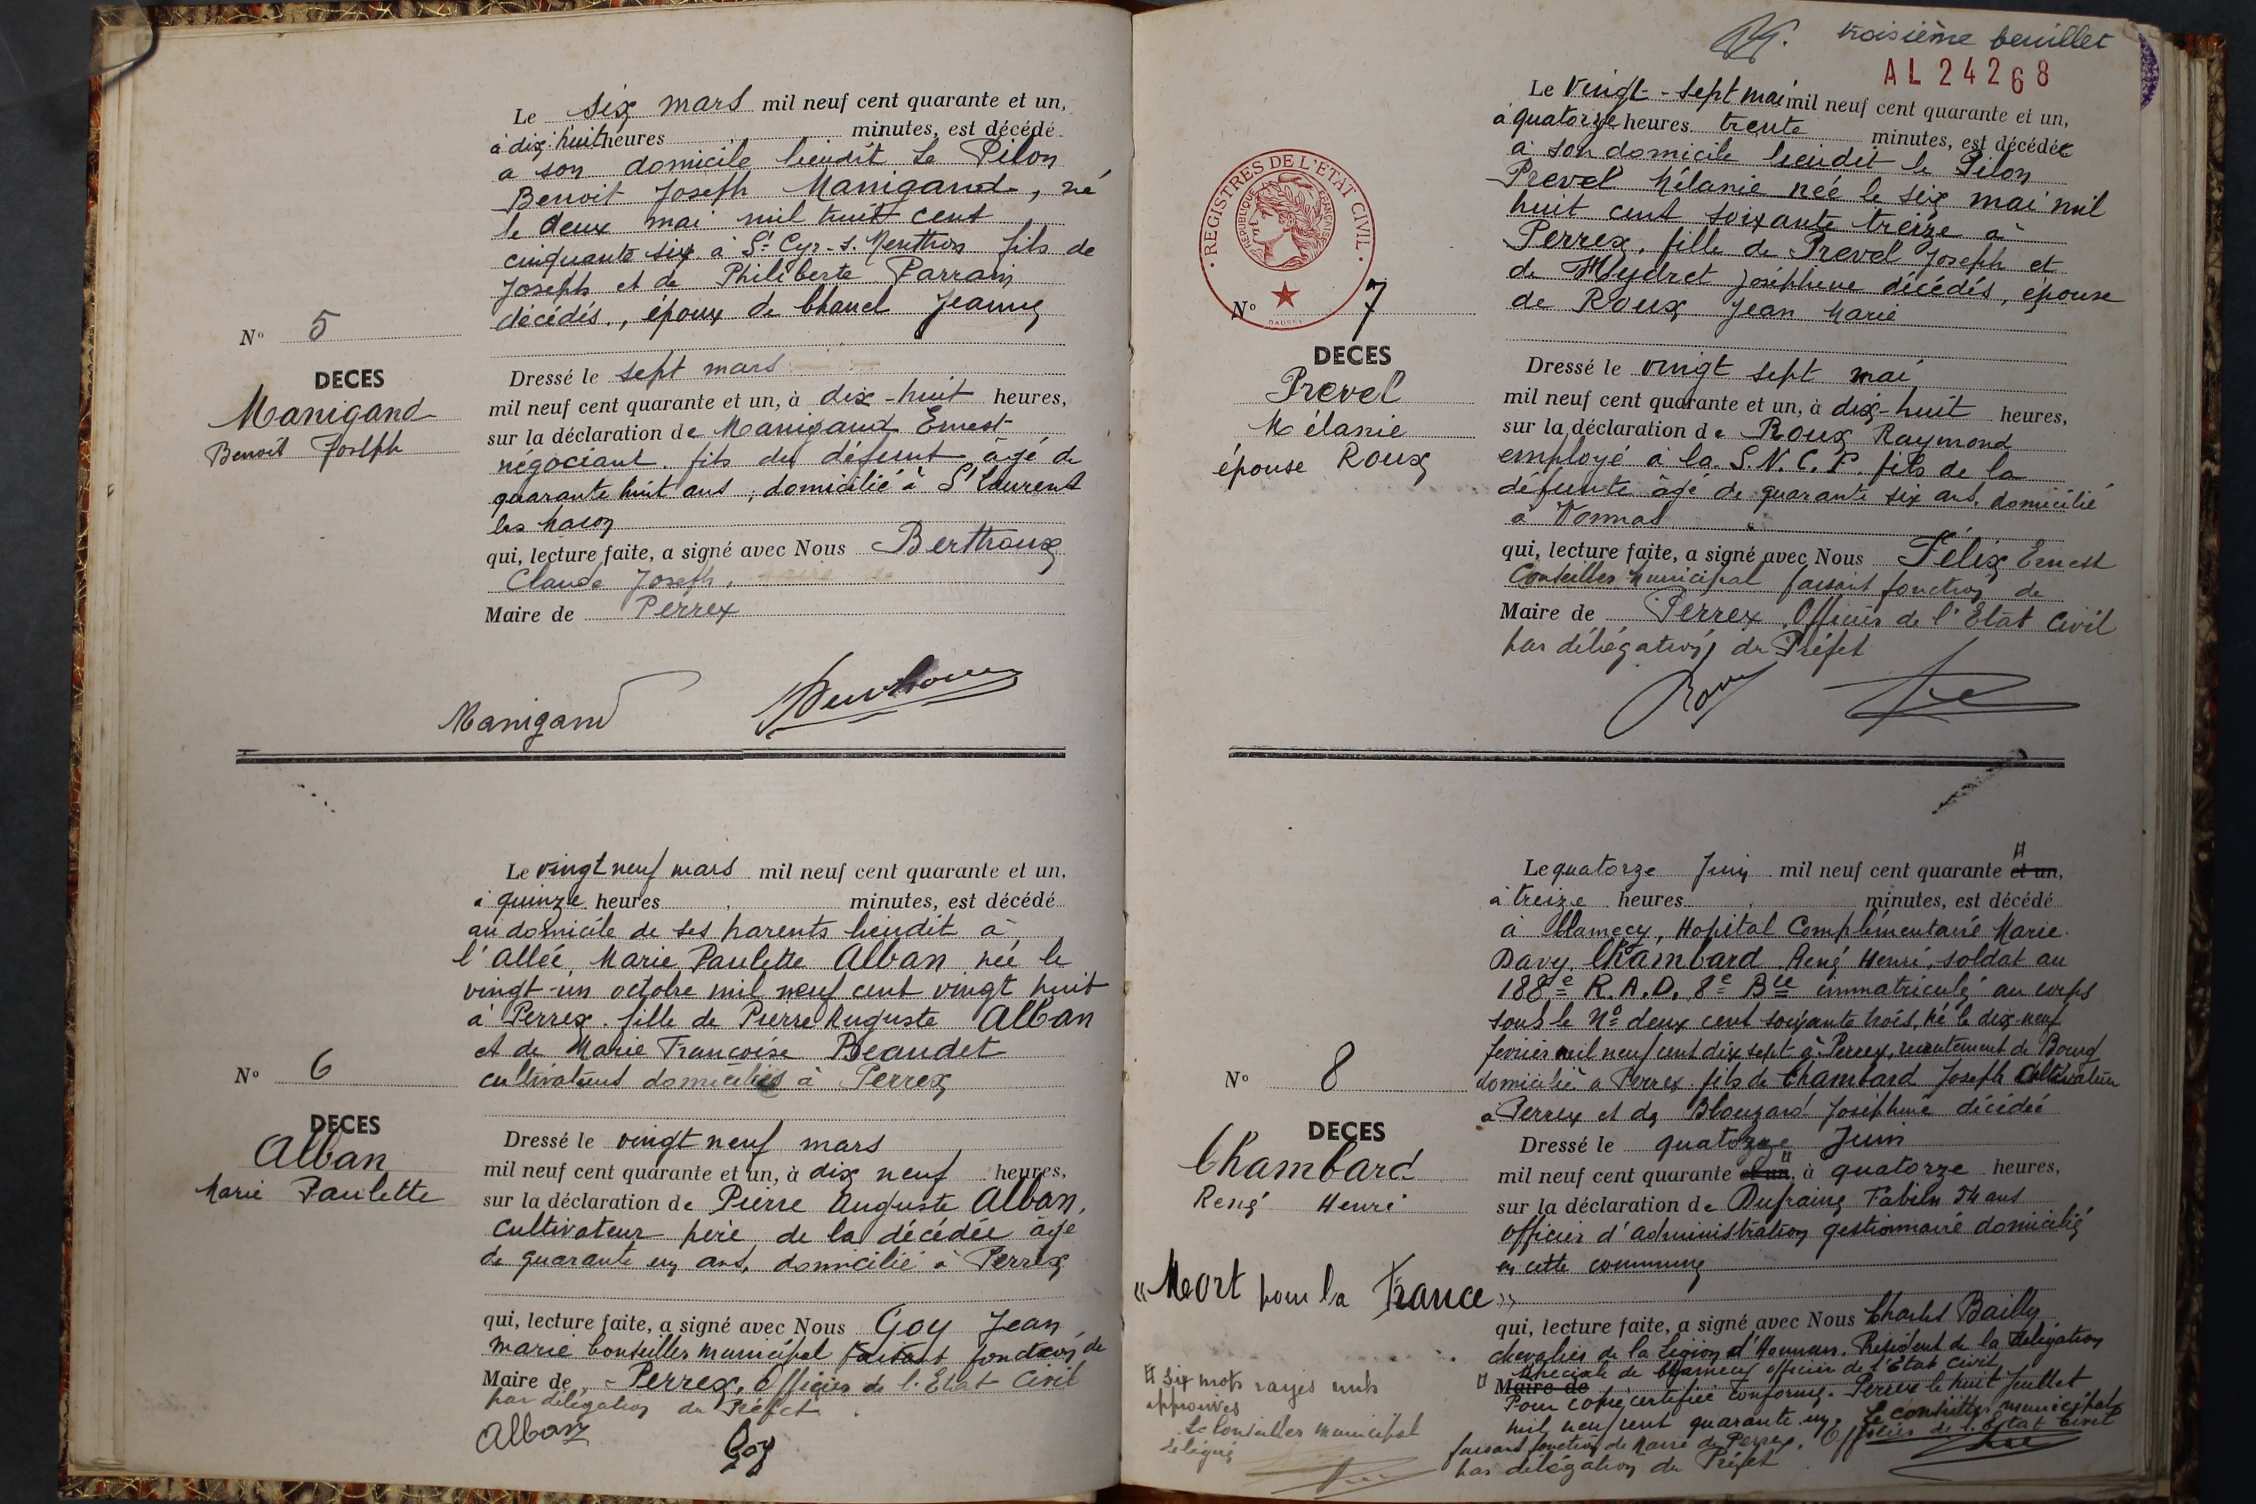 Le six mars mil neuf cent quarante et un,
à dix huit heures minutes, est décédé
à son domicile lieudit Le Pilon
Benoit Joseph Manigand, né
le deux mai mil huit cent
cinquante six à St Cyr-s. Menthon fils de
Joseph et de Philiberte Parrain
décédés, époux de Chanel Jeanne
N° 5
DECES
Manigand
Benoit Joseph
Dressé le sept mars
mil neuf cent quarante et un, à dix-huit heures,
sur la déclaration de Manigand Ernest
négociant. fils du défunt âgé de
quarante huit ans, domicilié à St Laurent
les Macon
qui, lecture faite, a signé avec Nous Berthoux
Claude Joseph,
Maire de Perrex
Manigand
Le vingt neuf mars mil neuf cent quarante et un,
à quinze heures minutes, est décédé
au domicile de ses parents lieudit à
l'allée, Marie Paulette Alban née le
vingt-un octobre mil neuf cent vingt huit
à Perrex. fille de Pierre Auguste Alban
et de Marie Françoise Beaudet
cultivateurs domiciliés à Perrex
N° 6
DECES
Alban
Marie Paulette
Dressé le vingt neuf mars
mil neuf cent quarante et un, à dix neuf heures,
sur la déclaration de Pierre Auguste Alban,
cultivateur père de la décédée âgé
de quarante un ans, domicilié à Perrex
qui, lecture faite, a signé avec Nous Goy Jean
Marie Conseiller municipal faisant fonction de
Maire de Perrex, Officier de l'Etat Civil
par délégation du Préfet.
Alban Goy
troisième feuillet
AL 24268
Le Vingt-sept mai mil neuf cent quarante et un,
à quatorze heures trente minutes, est décédée
à son domicile lieudit le Pilon
Prevel Mélanie née le six mai mil
huit cent soixante treize à
Perrex, fille de Prevel Joseph et
de Joséphine décédés, épouse
de Roux Jean Marie
REGISTRES DE L'ÉTAT CIVIL
RÉPUBLIQUE FRANÇAISE
N° 7
DECES
Prevel
Mélanie
épouse Roux
Dressé le vingt sept mai
mil neuf cent quarante et un, à dix-huit heures,
sur la déclaration de Roux Raymond
employé à la S.N.C.F. fils de la
défunte âgé de quarante six ans, domicilié
à Vonnas
qui, lecture faite, a signé avec Nous Félix Ernest
Conseiller municipal faisant fonction de
Maire de Perrex, Officier de l'Etat Civil
par délégation du Préfet
Roux
Le quatorze Juin mil neuf cent quarante et un,
à treize heures minutes, est décédé
à Clamecy, Hopital Complémentaire Marie
Davy, Chambard René Henri, soldat au
188e R.A.D. 8e Bie immatriculé au corps
sous le N° deux cent soixante trois, né le dix neuf
février mil neuf cent dix sept à Perrex, recrutement de Bourg
domicilié à Perrex. fils de Chambard Joseph Cultivateur
à Perrex et de Blouzard Joséphine décédée
N° 8
DECES
Chambard
René Henri
« Mort pour la France »
Dressé le quatorze Juin
mil neuf cent quarante et un, à quatorze heures,
sur la déclaration de Dufraine Fabien 54 ans
officier d'administration gestionnaire domicilié
en cette commune
qui, lecture faite, a signé avec Nous Charles Bailly
chevalier de la Légion d'Honneur. Président de la délégation
spéciale de Clamecy officier de l'Etat civil
Maire de
Pour copie certifiée conforme. Perrex le huit Juillet
mil neuf cent quarante un, Le conseiller municipal
faisant fonction de Maire de Perrex. Officier de l'Etat Civil
par délégation du Préfet
Six mots rayés nuls
approuvés
Le Conseiller municipal
délégué